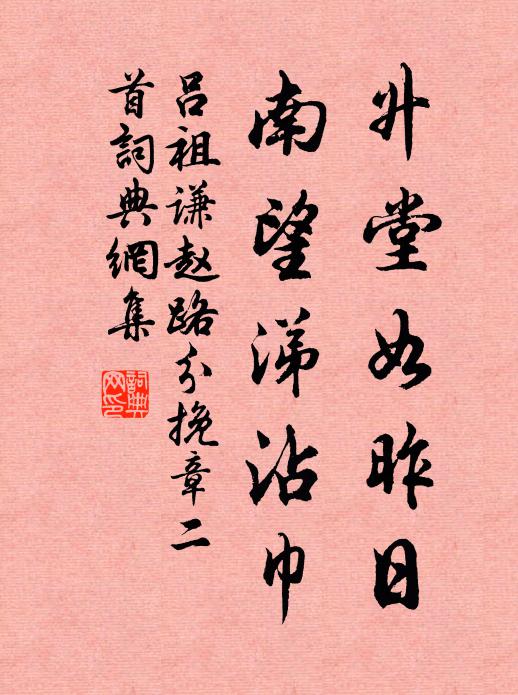 升堂如昨日
南望涕沾巾
吕祖谦赵路分挽章二
首詞典網集
詞典
网印